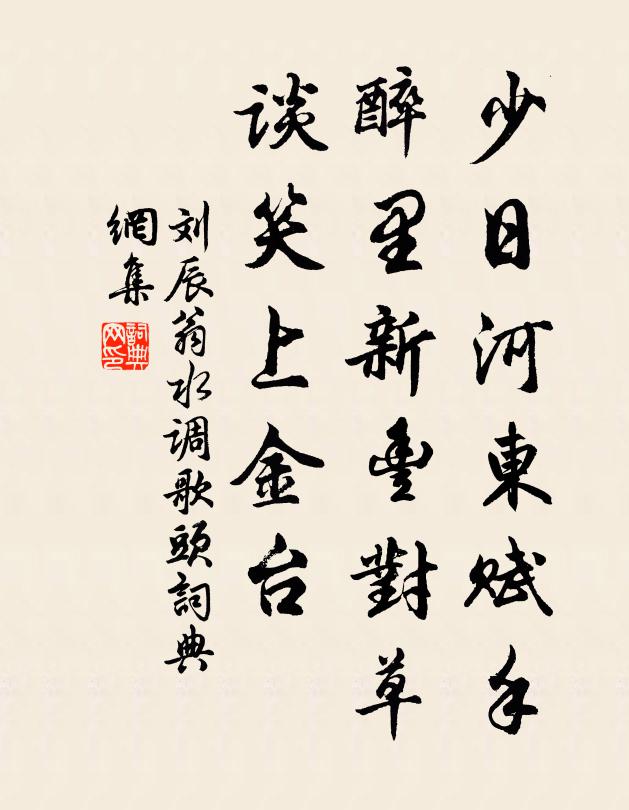 少日河東赋手
醉里新豐對草
谈笑上金台
刘辰翁水调歌頭詞典
網集
詞典
网印